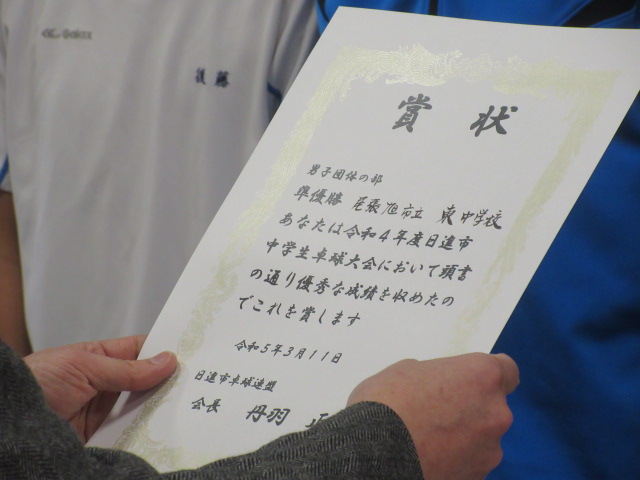 後藤
賞状
男子団体の部
準優勝 尾張旭市立 東中学校
あなたは令和4年度日進市
中学生卓球大会において頭書
の通り優秀な成績を収めたの
でこれを賞します
令和5年3月11日
日進市卓球連盟
会長 丹羽